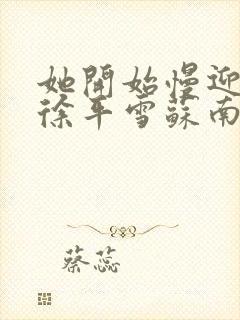 她開始慢迎
徐年雪蘇南
蔡蕊